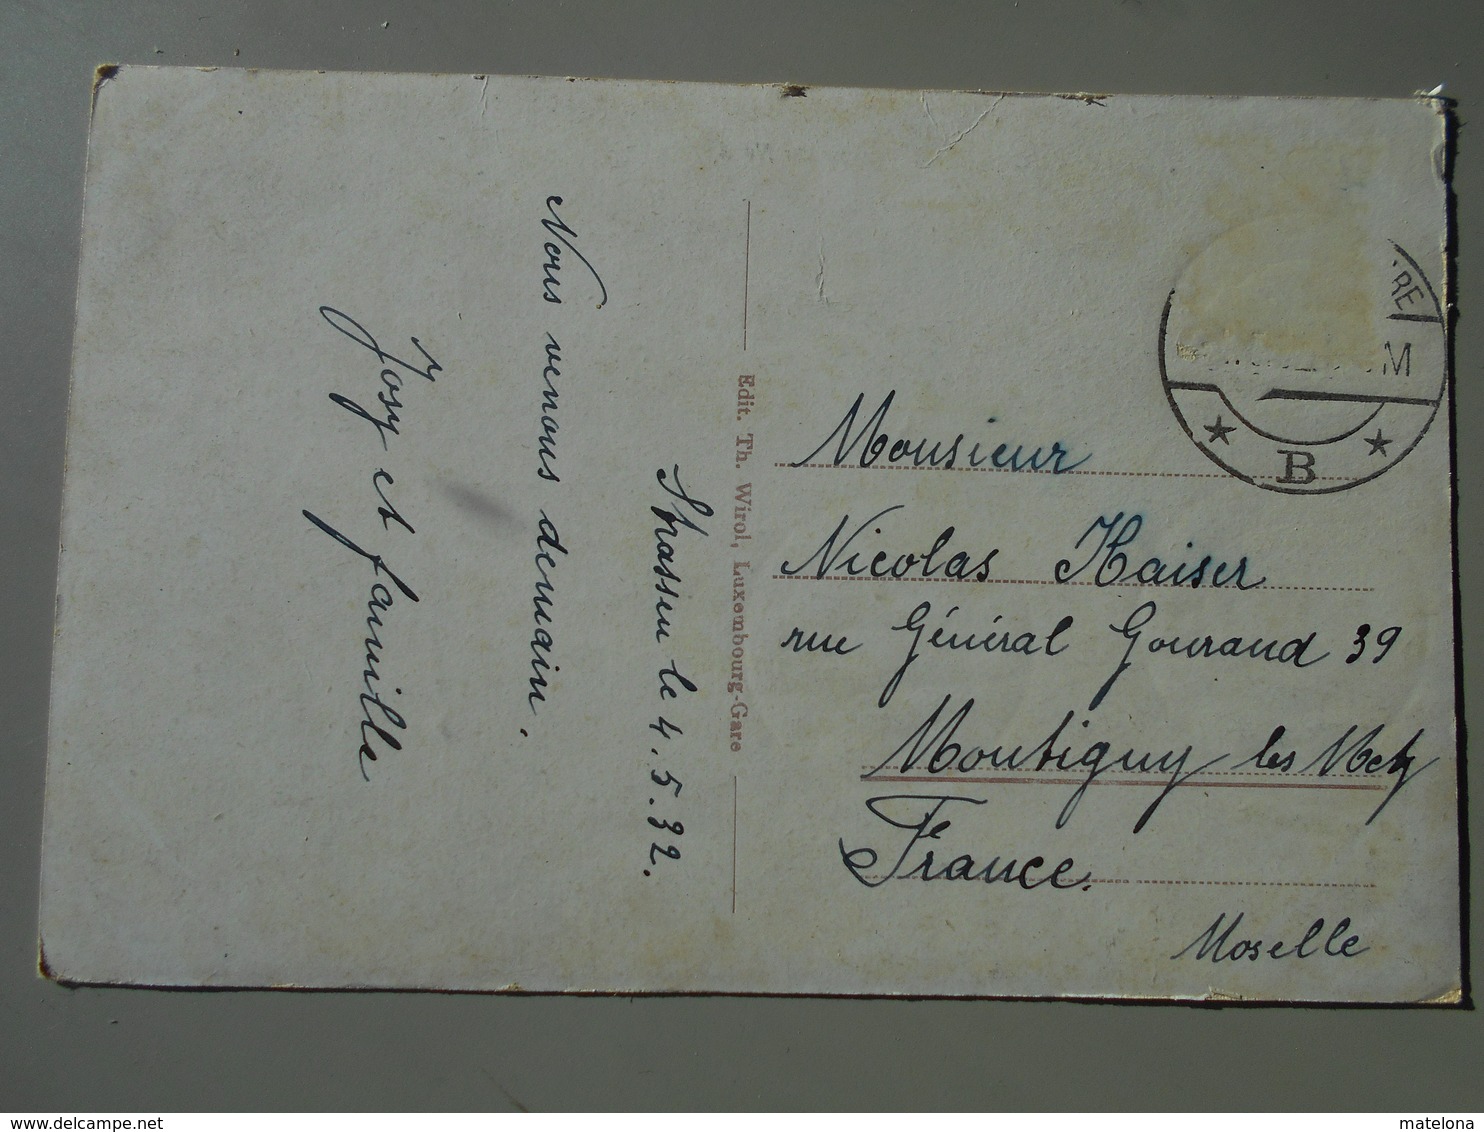 Strassen le 4.5.32.
Nous venons demain.
Josy et famille
Edit. Th. Wirol, Luxembourg-Gare
RE
M
B
Monsieur
Nicolas Kaiser
rue Général Gourand 39
Montigny les Metz
France.
Moselle
www.delcampe.net
matelona